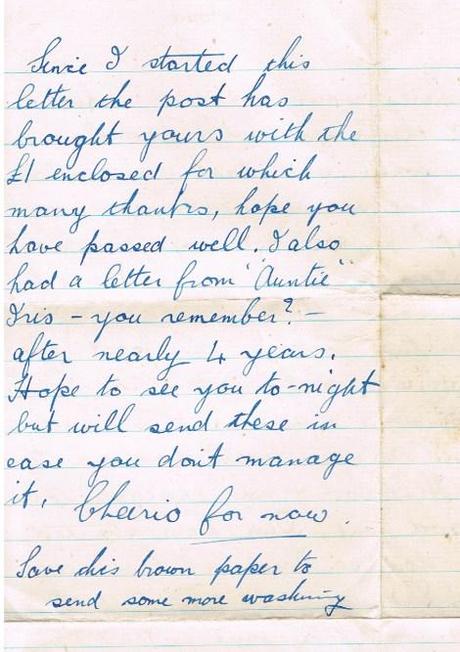 Since I started this
letter the post has
brought yours with the
£1 enclosed for which
many thanks, hope you
have passed well. I also
had a letter from "Auntie"
Iris - you remember? -
after nearly 4 years.
Hope to see you to-night
but will send these in
case you don't manage
it. Cheerio for now.
Save this brown paper to
send some more washing